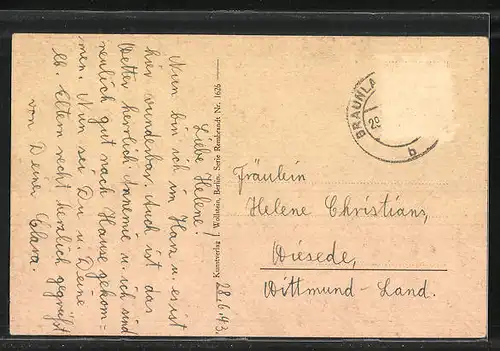 Liebe Helene!
Nun bin ich im Harz u. es ist
hier wunderbar. Auch ist das
Wetter herrlich. Annemie u. ich sind
neulich gut nach Hause gekom-
men. Nun sei Du u. Deine
lb. Eltern recht herzlich gegrüßt
von Deiner Clara.
28.6.43.
Kunstverlag Wollstein, Berlin. Serie Rembrandt Nr. 1625
BRAUNLA
29
b
Fräulein
Helene Christians,
Wiesede,
Wittmund-Land.